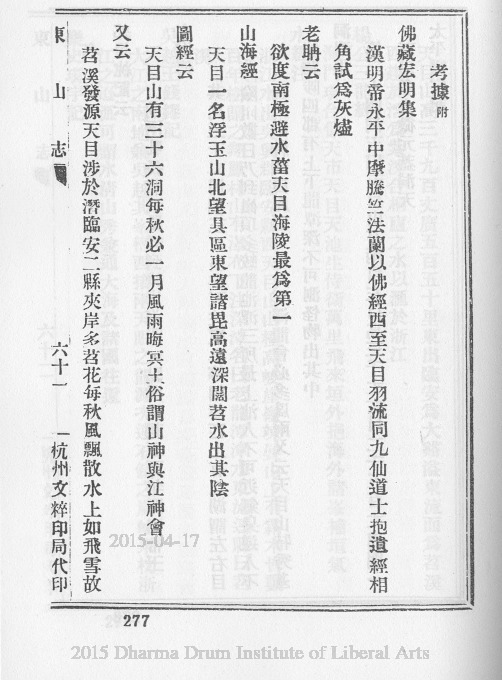 考據附
佛藏宏明集
漢明帝永平中摩騰竺法蘭以佛經西至天目羽流同九仙道士抱遺經相
角試爲灰燼
老聃云
欲度南極避水菑天目海陵最爲第一
山海經
天目一名浮玉山北望具區東望諸毘高遠深闊苕水出其陰
圖經云
天目山有三十六洞每秋必一月風雨晦冥土俗謂山神與江神會
又云
苕溪發源天目涉於潛臨安二縣夾岸多苕花每秋風飄散水上如飛雪故
東山志
六十一
杭州文粹印局代印
2015-04-17
277
2015 Dharma Drum Institute of Liberal Arts